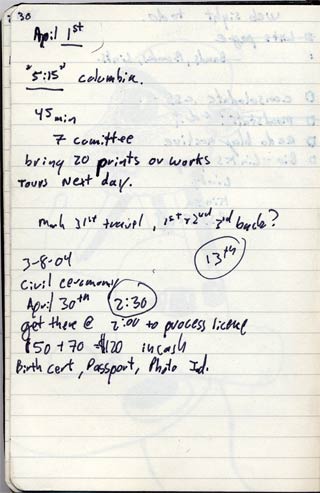 : 30
April 1st
"5:15" columbia.
45 min
7 comittee
bring 20 prints or works
Tours Next day.
March 31st travel, 1st + 2nd 3rd back?
13th
3-8-04
Civil ceremony
April 30th 2:30
get there @ 2:00 to process license
$50 + 70 = $120 in cash
Birth cert, Passport, Photo Id.